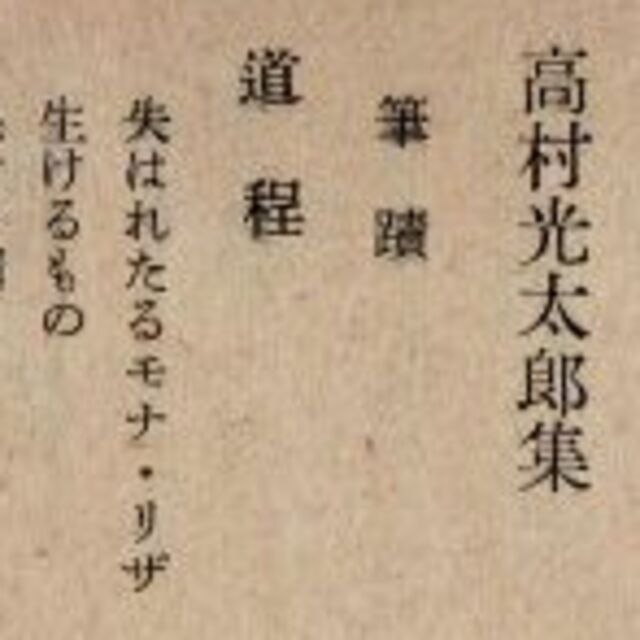 高村光太郎集
筆蹟
道程
失はれたるモナ・リザ
生けるもの